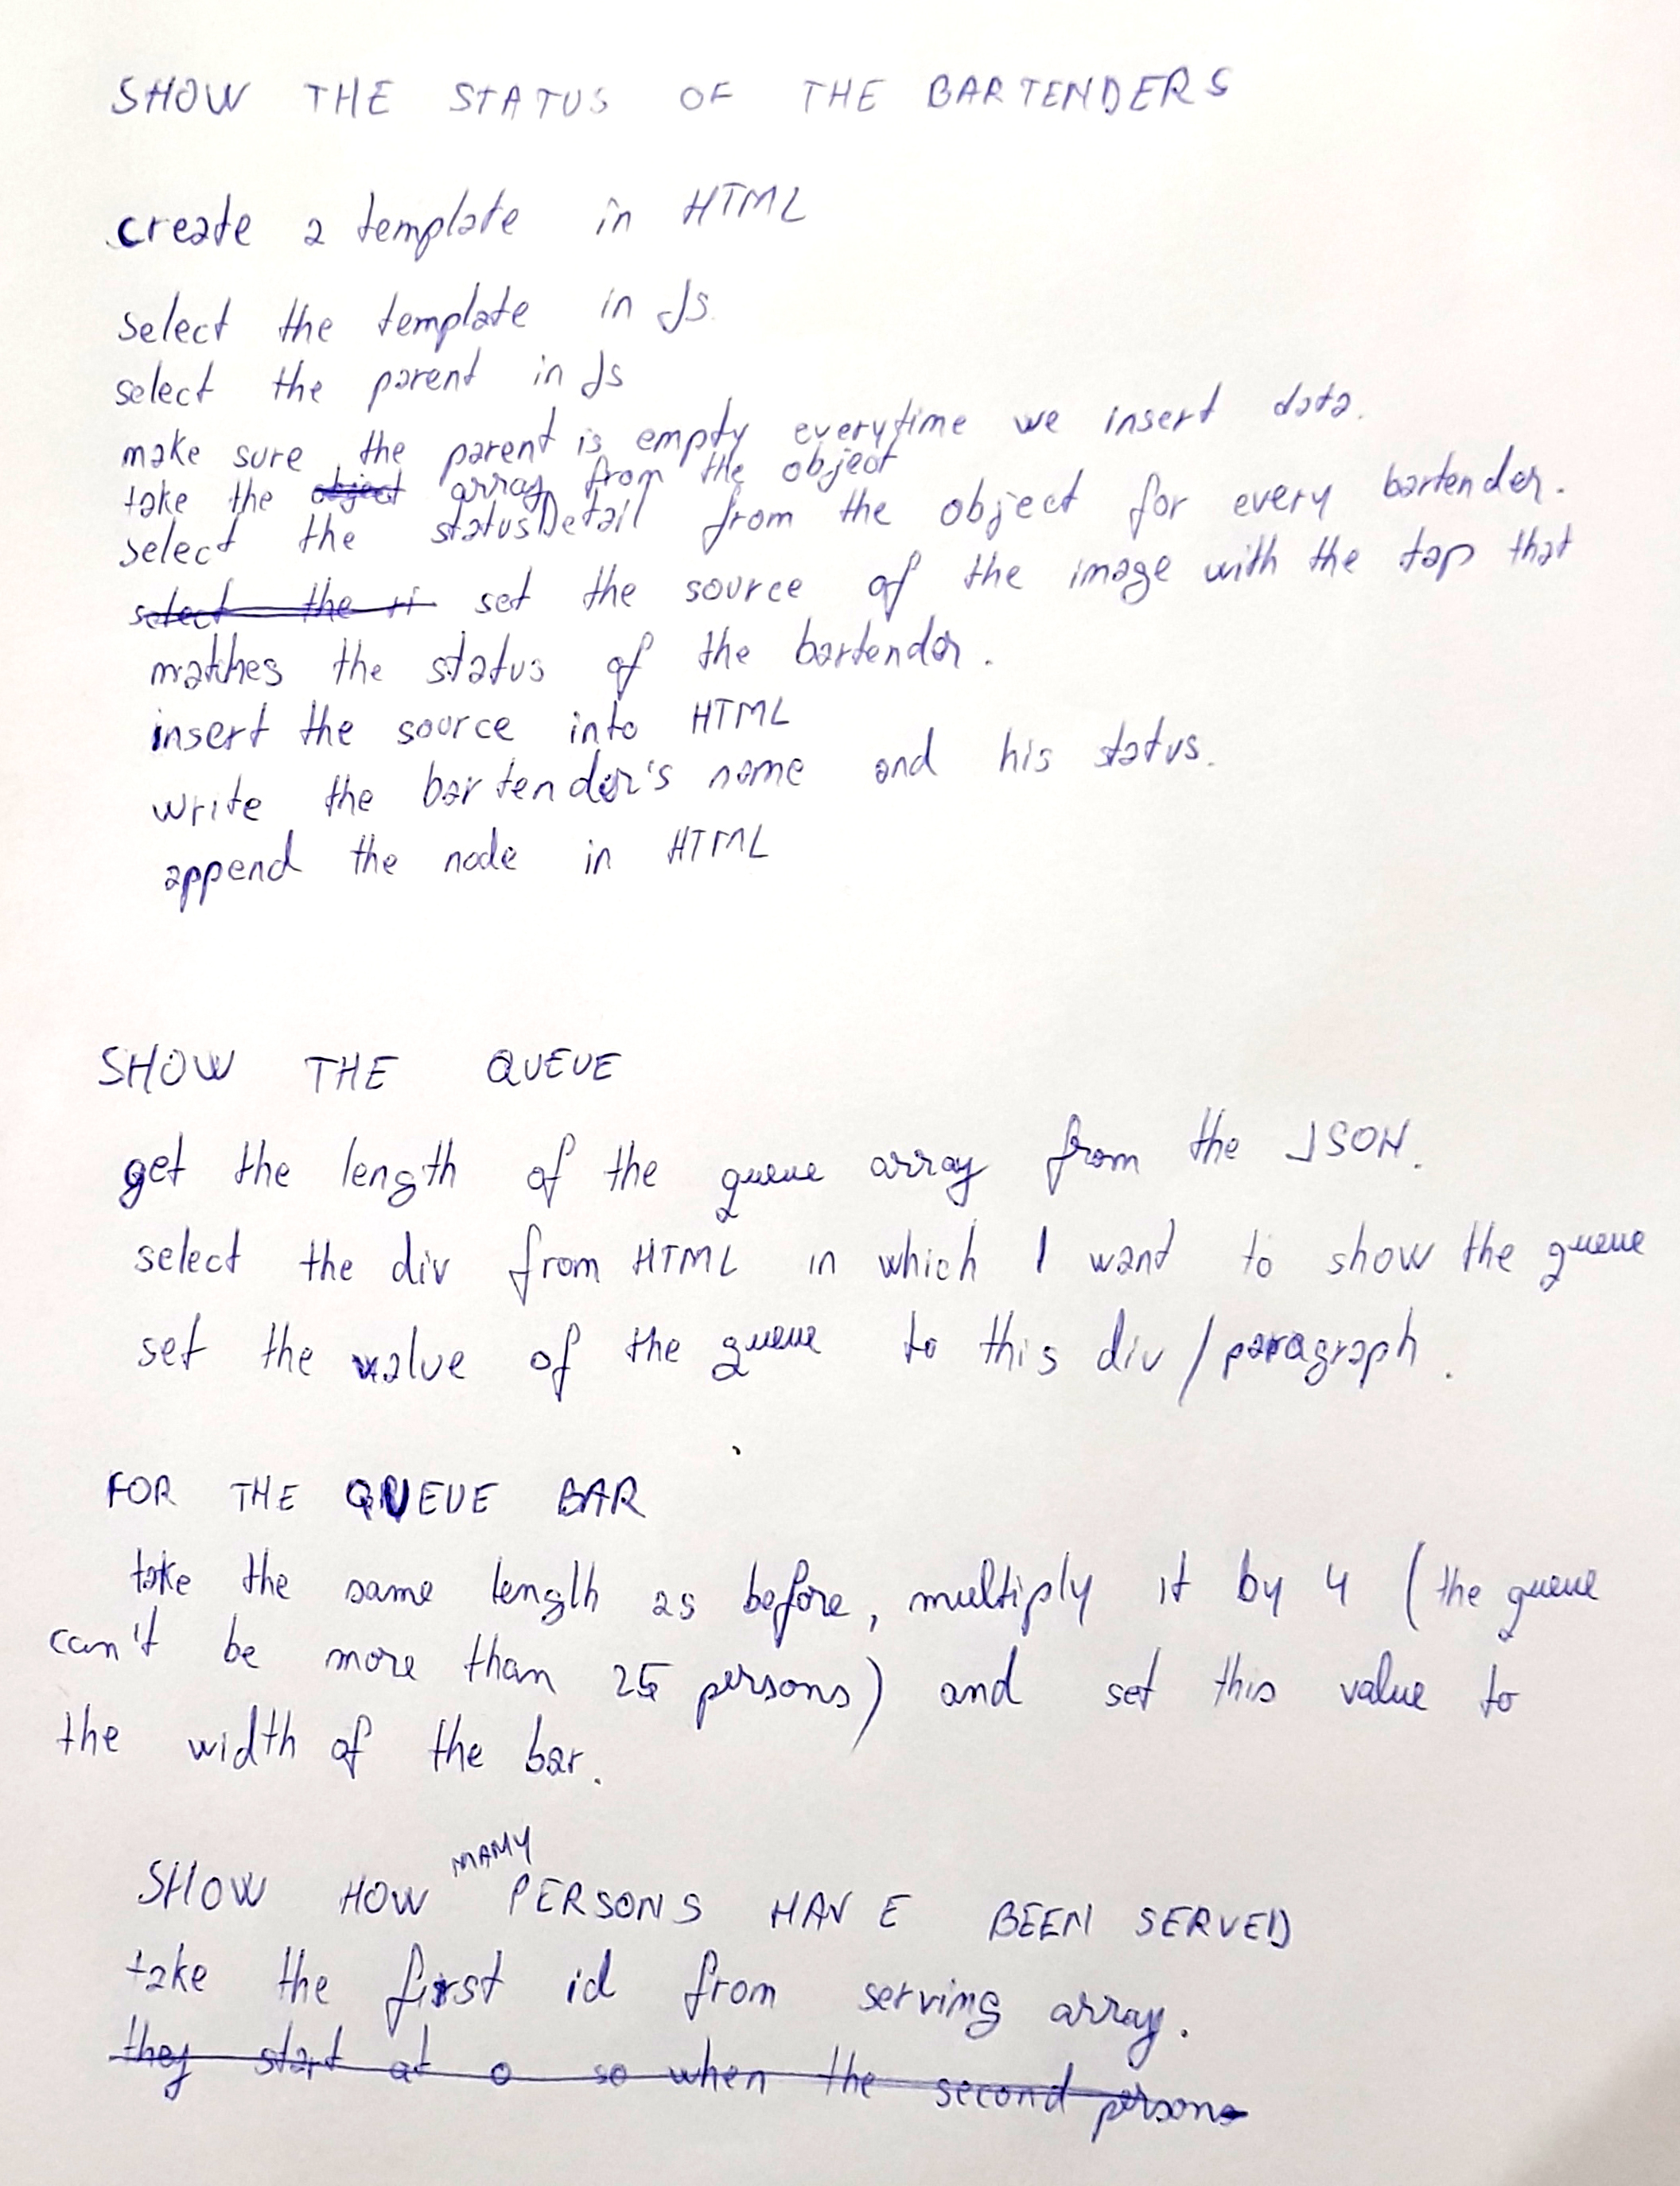 SHOW THE STATUS OF THE BARTENDERS
create a template in HTML
select the template in Js.
select the parent in Js
make sure the parent is empty everytime we insert data.
take the object array from the object
select the statusDetail from the object for every bartender.
select the ri set the source of the image with the tap that
matches the status of the bartender.
insert the source into HTML
write the bartender's name and his status.
append the node in HTML
SHOW THE QUEUE
get the length of the queue array from the JSON.
select the div from HTML in which I want to show the queue
set the value of the queue to this div / paragraph.
FOR THE QUEUE BAR
take the same length as before, multiply it by 4 (the queue
can't be more than 25 persons) and set this value to
the width of the bar.
SHOW HOW MANY PERSONS HAVE BEEN SERVED
take the first id from serving array.
they start at 0 so when the second persons